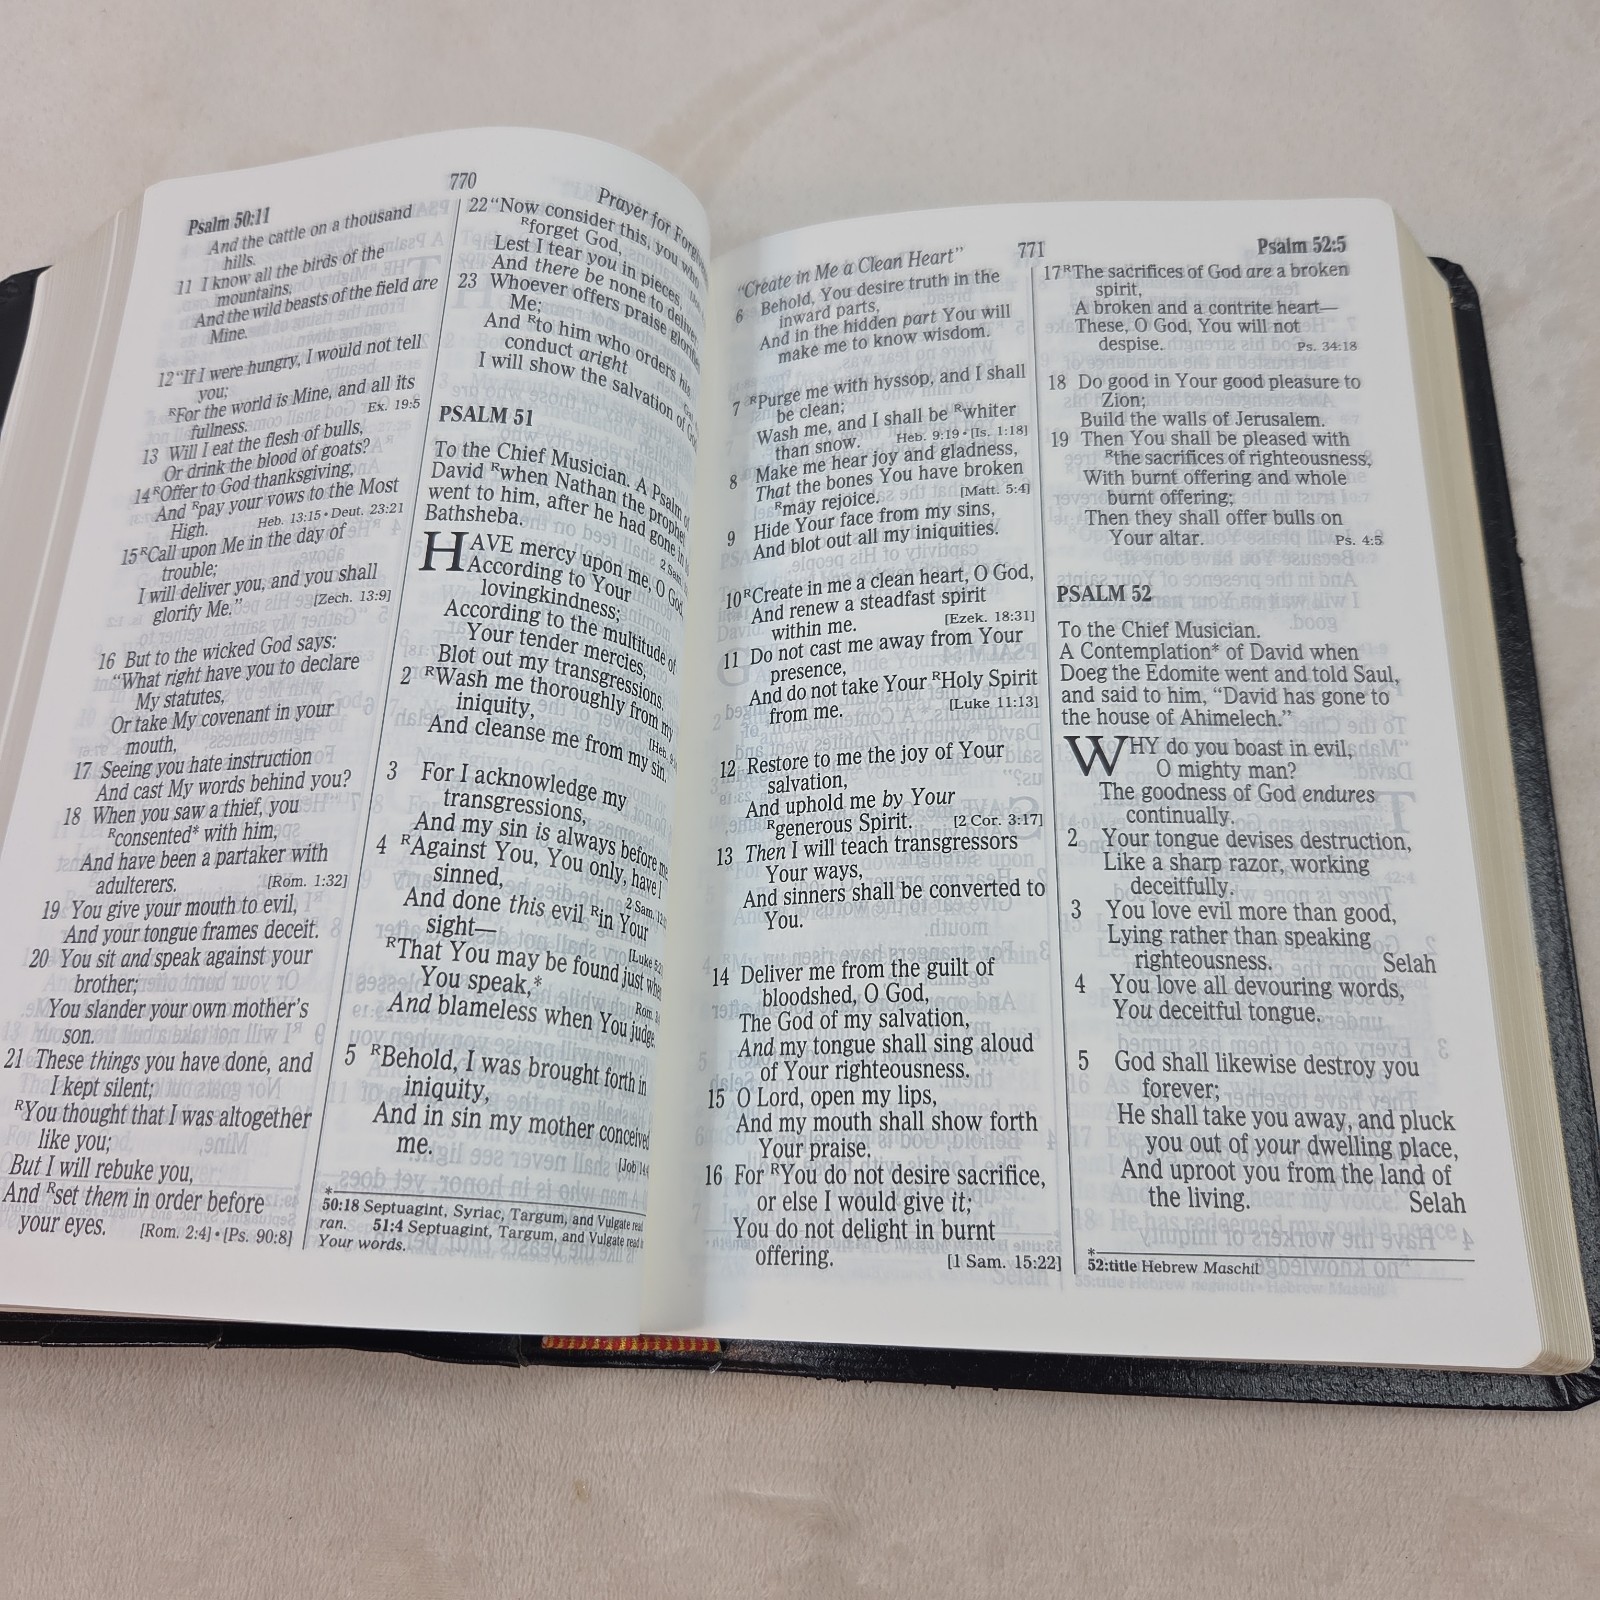 Psalm 50:11
770
Prayer for
And the cattle on a thousand
hills.
11 I know all the birds of the
mountains,
And the wild beasts of the field are
Mine.
12 "If I were hungry, I would not tell
you;
RFor the world is Mine, and all its
fullness. Ex. 19:5
13 Will I eat the flesh of bulls,
Or drink the blood of goats?
14 ROffer to God thanksgiving,
And Rpay your vows to the Most
High. Heb. 13:15 • Deut. 23:21
15 RCall upon Me in the day of
trouble;
I will deliver you, and you shall
glorify Me." [Zech. 13:9]
16 But to the wicked God says:
"What right have you to declare
My statutes,
Or take My covenant in your
mouth,
17 Seeing you hate instruction
And cast My words behind you?
18 When you saw a thief, you
Rconsented* with him,
And have been a partaker with
adulterers. [Rom. 1:32]
19 You give your mouth to evil,
And your tongue frames deceit.
20 You sit and speak against your
brother;
You slander your own mother's
son.
21 These things you have done, and
I kept silent;
RYou thought that I was altogether
like you;
But I will rebuke you,
And Rset them in order before
your eyes. [Rom. 2:4] • [Ps. 90:8]
22 "Now consider this, you who
Rforget God,
Lest I tear you in pieces,
And there be none to deliver
23 Whoever offers praise glorifies
Me;
And Rto him who orders his
conduct aright
I will show the salvation of God
PSALM 51
To the Chief Musician. A Psalm of
David Rwhen Nathan the prophet
went to him, after he had gone in
Bathsheba. 2 Sam.
HAVE mercy upon me, O God,
According to Your
lovingkindness;
According to the multitude of
Your tender mercies,
Blot out my transgressions.
2 RWash me thoroughly from my
iniquity, [Heb.
And cleanse me from my sin.
3 For I acknowledge my
transgressions,
And my sin is always before me
4 RAgainst You, You only, have I
sinned, 2 Sam.
And done this evil Rin Your
sight— [Luke
RThat You may be found just when
You speak,* Rom.
And blameless when You judge.
5 RBehold, I was brought forth in
iniquity,
And in sin my mother conceived
me. [Job
*
50:18 Septuagint, Syriac, Targum, and Vulgate read
ran. 51:4 Septuagint, Targum, and Vulgate read
Your words.
"Create in Me a Clean Heart"
771
Psalm 52:5
6 Behold, You desire truth in the
inward parts,
And in the hidden part You will
make me to know wisdom.
7 RPurge me with hyssop, and I shall
be clean;
Wash me, and I shall be Rwhiter
than snow. Heb. 9:19 • [Is. 1:18]
8 Make me hear joy and gladness,
That the bones You have broken
Rmay rejoice. [Matt. 5:4]
9 Hide Your face from my sins,
And blot out all my iniquities.
10 RCreate in me a clean heart, O God,
And renew a steadfast spirit
within me. [Ezek. 18:31]
11 Do not cast me away from Your
presence,
And do not take Your RHoly Spirit
from me. [Luke 11:13]
12 Restore to me the joy of Your
salvation,
And uphold me by Your
Rgenerous Spirit. [2 Cor. 3:17]
13 Then I will teach transgressors
Your ways,
And sinners shall be converted to
You.
14 Deliver me from the guilt of
bloodshed, O God,
The God of my salvation,
And my tongue shall sing aloud
of Your righteousness.
15 O Lord, open my lips,
And my mouth shall show forth
Your praise.
16 For RYou do not desire sacrifice,
or else I would give it;
You do not delight in burnt
offering. [1 Sam. 15:22]
17 RThe sacrifices of God are a broken
spirit,
A broken and a contrite heart—
These, O God, You will not
despise. Ps. 34:18
18 Do good in Your good pleasure to
Zion;
Build the walls of Jerusalem.
19 Then You shall be pleased with
Rthe sacrifices of righteousness,
With burnt offering and whole
burnt offering;
Then they shall offer bulls on
Your altar. Ps. 4:5
PSALM 52
To the Chief Musician.
A Contemplation* of David when
Doeg the Edomite went and told Saul,
and said to him, "David has gone to
the house of Ahimelech."
WHY do you boast in evil,
O mighty man?
The goodness of God endures
continually.
2 Your tongue devises destruction,
Like a sharp razor, working
deceitfully.
3 You love evil more than good,
Lying rather than speaking
righteousness. Selah
4 You love all devouring words,
You deceitful tongue.
5 God shall likewise destroy you
forever;
He shall take you away, and pluck
you out of your dwelling place,
And uproot you from the land of
the living. Selah
*
52:title Hebrew Maschil